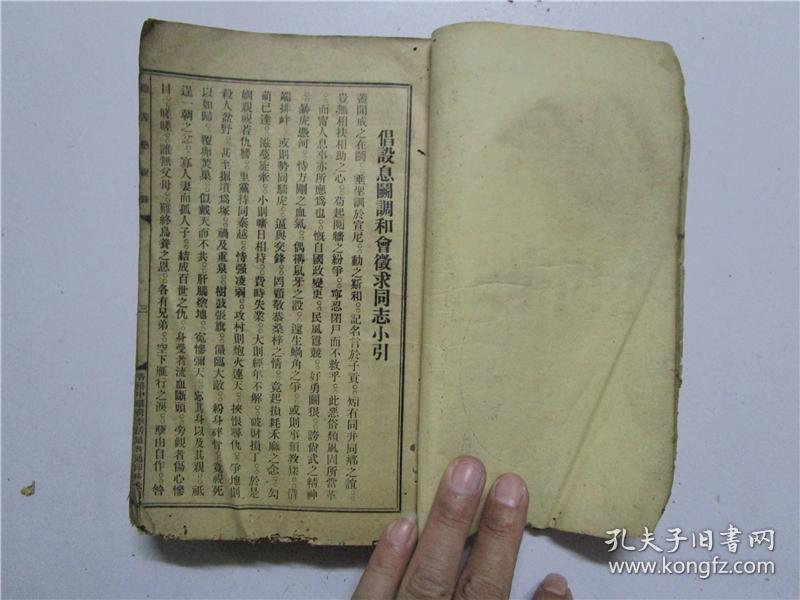 倡設息鬬調和會徵求同志小引
蓋聞戒之在鬬。垂聖訓於宣尼。動之斯和。記名言於子貢。矧有同井同鄉之誼。
豈無相扶相助之心。苟起鬩牆之紛爭。寧忍閉戶而不救乎。此惡俗頹風固所當革。
而甯人息事亦所應爲也。慨自國政變更。民風囂競。好勇鬬狠。誇尙武之精神
暴虎憑河。恃方剛之血氣。偶搆鼠牙之設。遠生蝸角之爭。或則事類教猱。借
端排衅。或則勢同騎虎。逼與交鋒。罔顧敬恭桑梓之情。竟起損耗禾麻之念。勾
萌已達。滋蔓旋牽。小則曠日相持。費時失業。大則經年不解。破財損丁。於是
鄉親視若仇讐。里黨持同秦越。恃强凌弱。攻村則炮火連天。挾恨尋仇。爭地則
殺人盆野。甚至掘墳爲塚。禍及重泉。樹鼓張旗。儼臨大敵。粉身碎骨。竟視死
以如歸。覆卵焚巢。似戴天而不共。肝腦塗地。寃慘彌天。忘其身以及其親。祇
逞一朝之忿。寡人妻而孤人子。結成百世之仇。身受者流血斷頭。旁觀者傷心慘
目。嗟嗟。誰無父母。難終烏養之恩。各有兄弟。空下雁行之淚。孽由自作。咎
三
孔夫子旧书网
www.kongfz.com